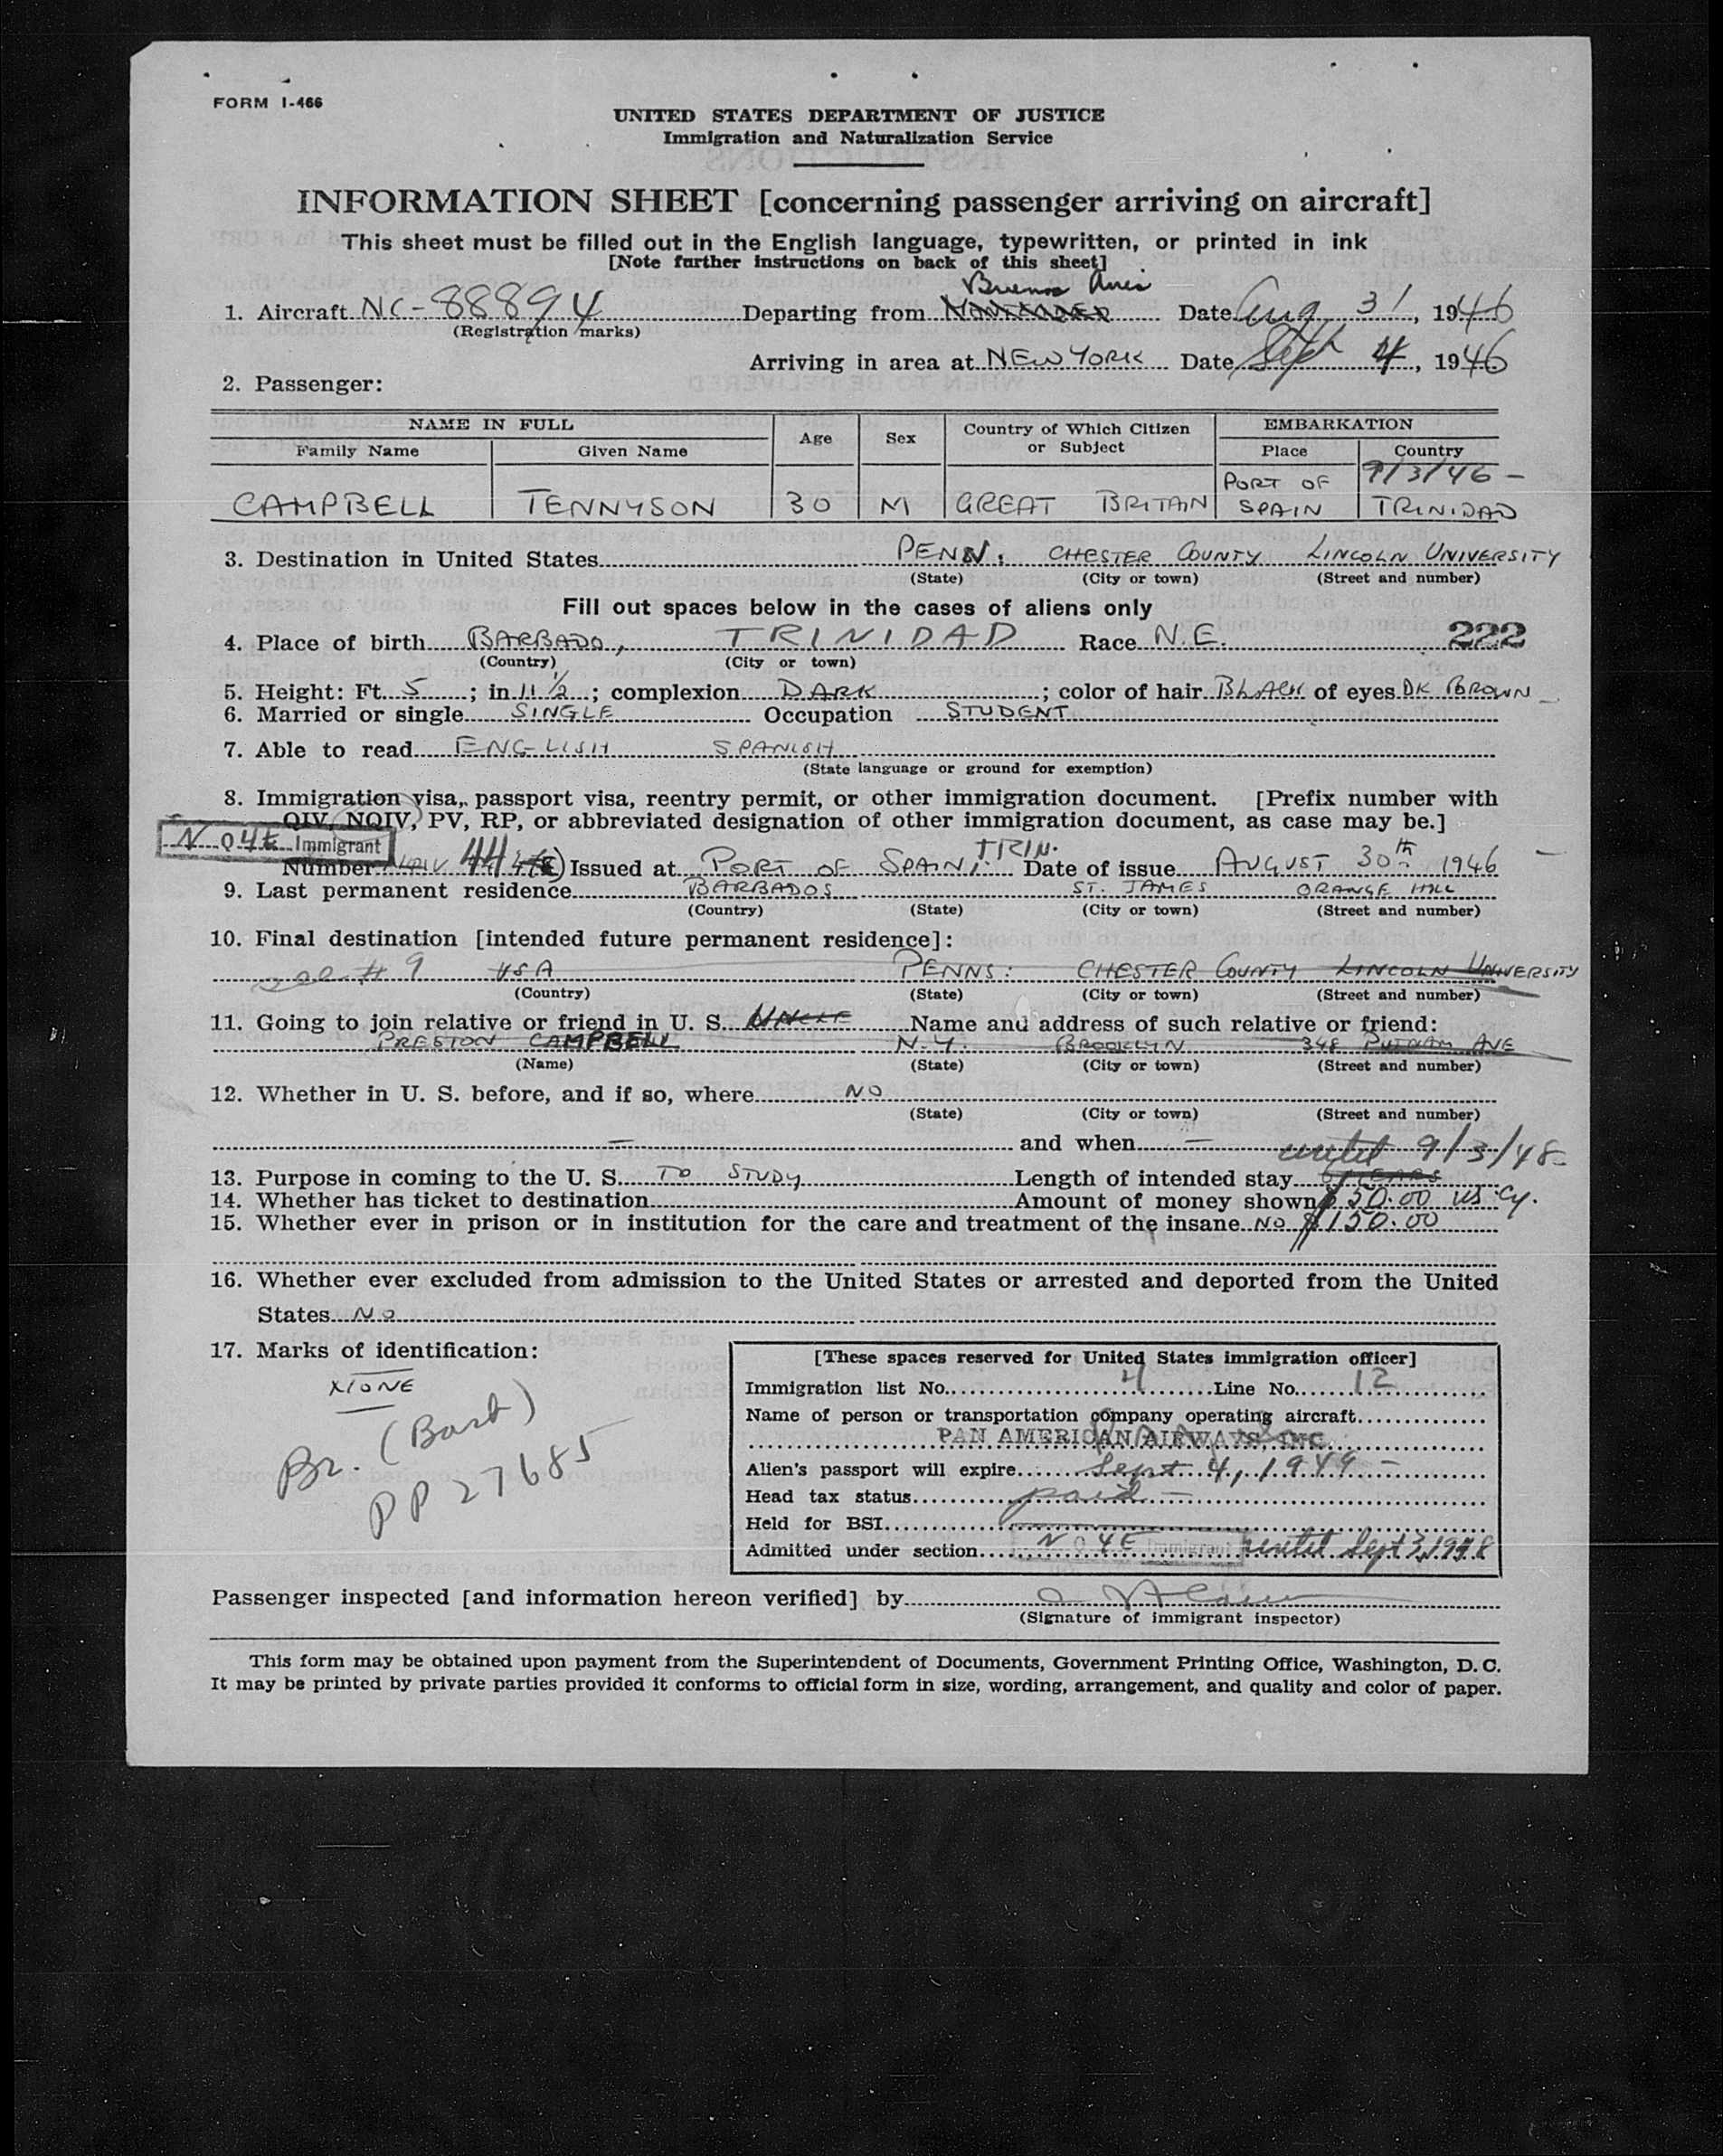 FORM I-466
UNITED STATES DEPARTMENT OF JUSTICE
Immigration and Naturalization Service
INFORMATION SHEET [concerning passenger arriving on aircraft]
This sheet must be filled out in the English language, typewritten, or printed in ink
[Note further instructions on back of this sheet]
Buenos Aires
1. Aircraft NC-88894 Departing from Date Aug 31, 1946
(Registration marks)
Arriving in area at NEW YORK Date Sept 4, 1946
2. Passenger:
NAME IN FULL Age Sex Country of Which Citizen or Subject EMBARKATION
Family Name Given Name Place Country
9/3/46 -
CAMPBELL TENNYSON 30 M GREAT BRITAIN PORT OF SPAIN TRINIDAD
3. Destination in United States PENN. CHESTER COUNTY LINCOLN UNIVERSITY
(State) (City or town) (Street and number)
Fill out spaces below in the cases of aliens only
4. Place of birth BARBADO, TRINIDAD Race N.E. 222
(Country) (City or town)
5. Height: Ft. 5 ; in 11 1/2 ; complexion DARK ; color of hair BLACK of eyes DK BROWN
6. Married or single SINGLE Occupation STUDENT
7. Able to read ENGLISH SPANISH
(State language or ground for exemption)
8. Immigration visa, passport visa, reentry permit, or other immigration document. [Prefix number with
QIV, NQIV, PV, RP, or abbreviated designation of other immigration document, as case may be.]
N Q 4E Immigrant
TRIN.
Number Issued at PORT OF SPAIN, Date of issue AUGUST 30th 1946
9. Last permanent residence BARBADOS ST. JAMES ORANGE HILL
(Country) (State) (City or town) (Street and number)
10. Final destination [intended future permanent residence]:
see # 9 USA PENNS: CHESTER COUNTY LINCOLN UNIVERSITY
(Country) (State) (City or town) (Street and number)
11. Going to join relative or friend in U. S. UNCLE Name and address of such relative or friend:
PRESTON CAMPBELL N.Y. BROOKLYN 348 PUTNAM AVE
(Name) (State) (City or town) (Street and number)
12. Whether in U. S. before, and if so, where NO
(State) (City or town) (Street and number)
— and when — until 9/3/48
13. Purpose in coming to the U. S. TO STUDY Length of intended stay YEARS
14. Whether has ticket to destination Amount of money shown $50.00 US Cy.
15. Whether ever in prison or in institution for the care and treatment of the insane NO $150.00
16. Whether ever excluded from admission to the United States or arrested and deported from the United
States NO
17. Marks of identification:
NONE
Br. (Barb)
PP 27685
[These spaces reserved for United States immigration officer]
Immigration list No. 4 Line No. 12
Name of person or transportation company operating aircraft
PAN AMERICAN AIRWAYS, INC.
Alien's passport will expire Sept 4, 1949 -
Head tax status paid -
Held for BSI
Admitted under section N Q 4E Immigrant until Sept 3, 1948
Passenger inspected [and information hereon verified] by
(Signature of immigrant inspector)
This form may be obtained upon payment from the Superintendent of Documents, Government Printing Office, Washington, D. C.
It may be printed by private parties provided it conforms to official form in size, wording, arrangement, and quality and color of paper.